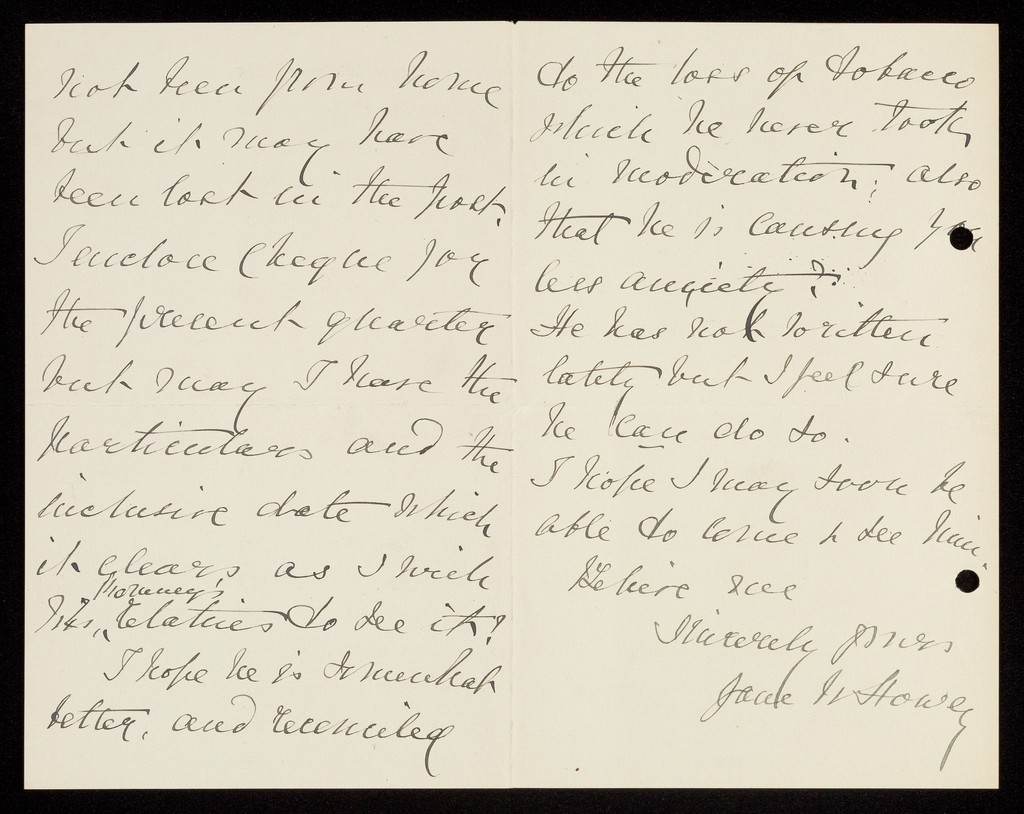 not been from home
but it may have
been lost in the post.
I enclose Cheque for
the present quarter
but may I have the
particulars and the
inclusive date which
it clears as I wish
his relatives to see it?
I hope he is somewhat
better, and reconciled
to the loss of tobacco
which he never took
in moderation; also
that he is causing you
less anxiety?
He has not written
lately but I feel sure
he can do so.
I hope I may soon be
able to come & see him
Believe me
Sincerely yours
Jane